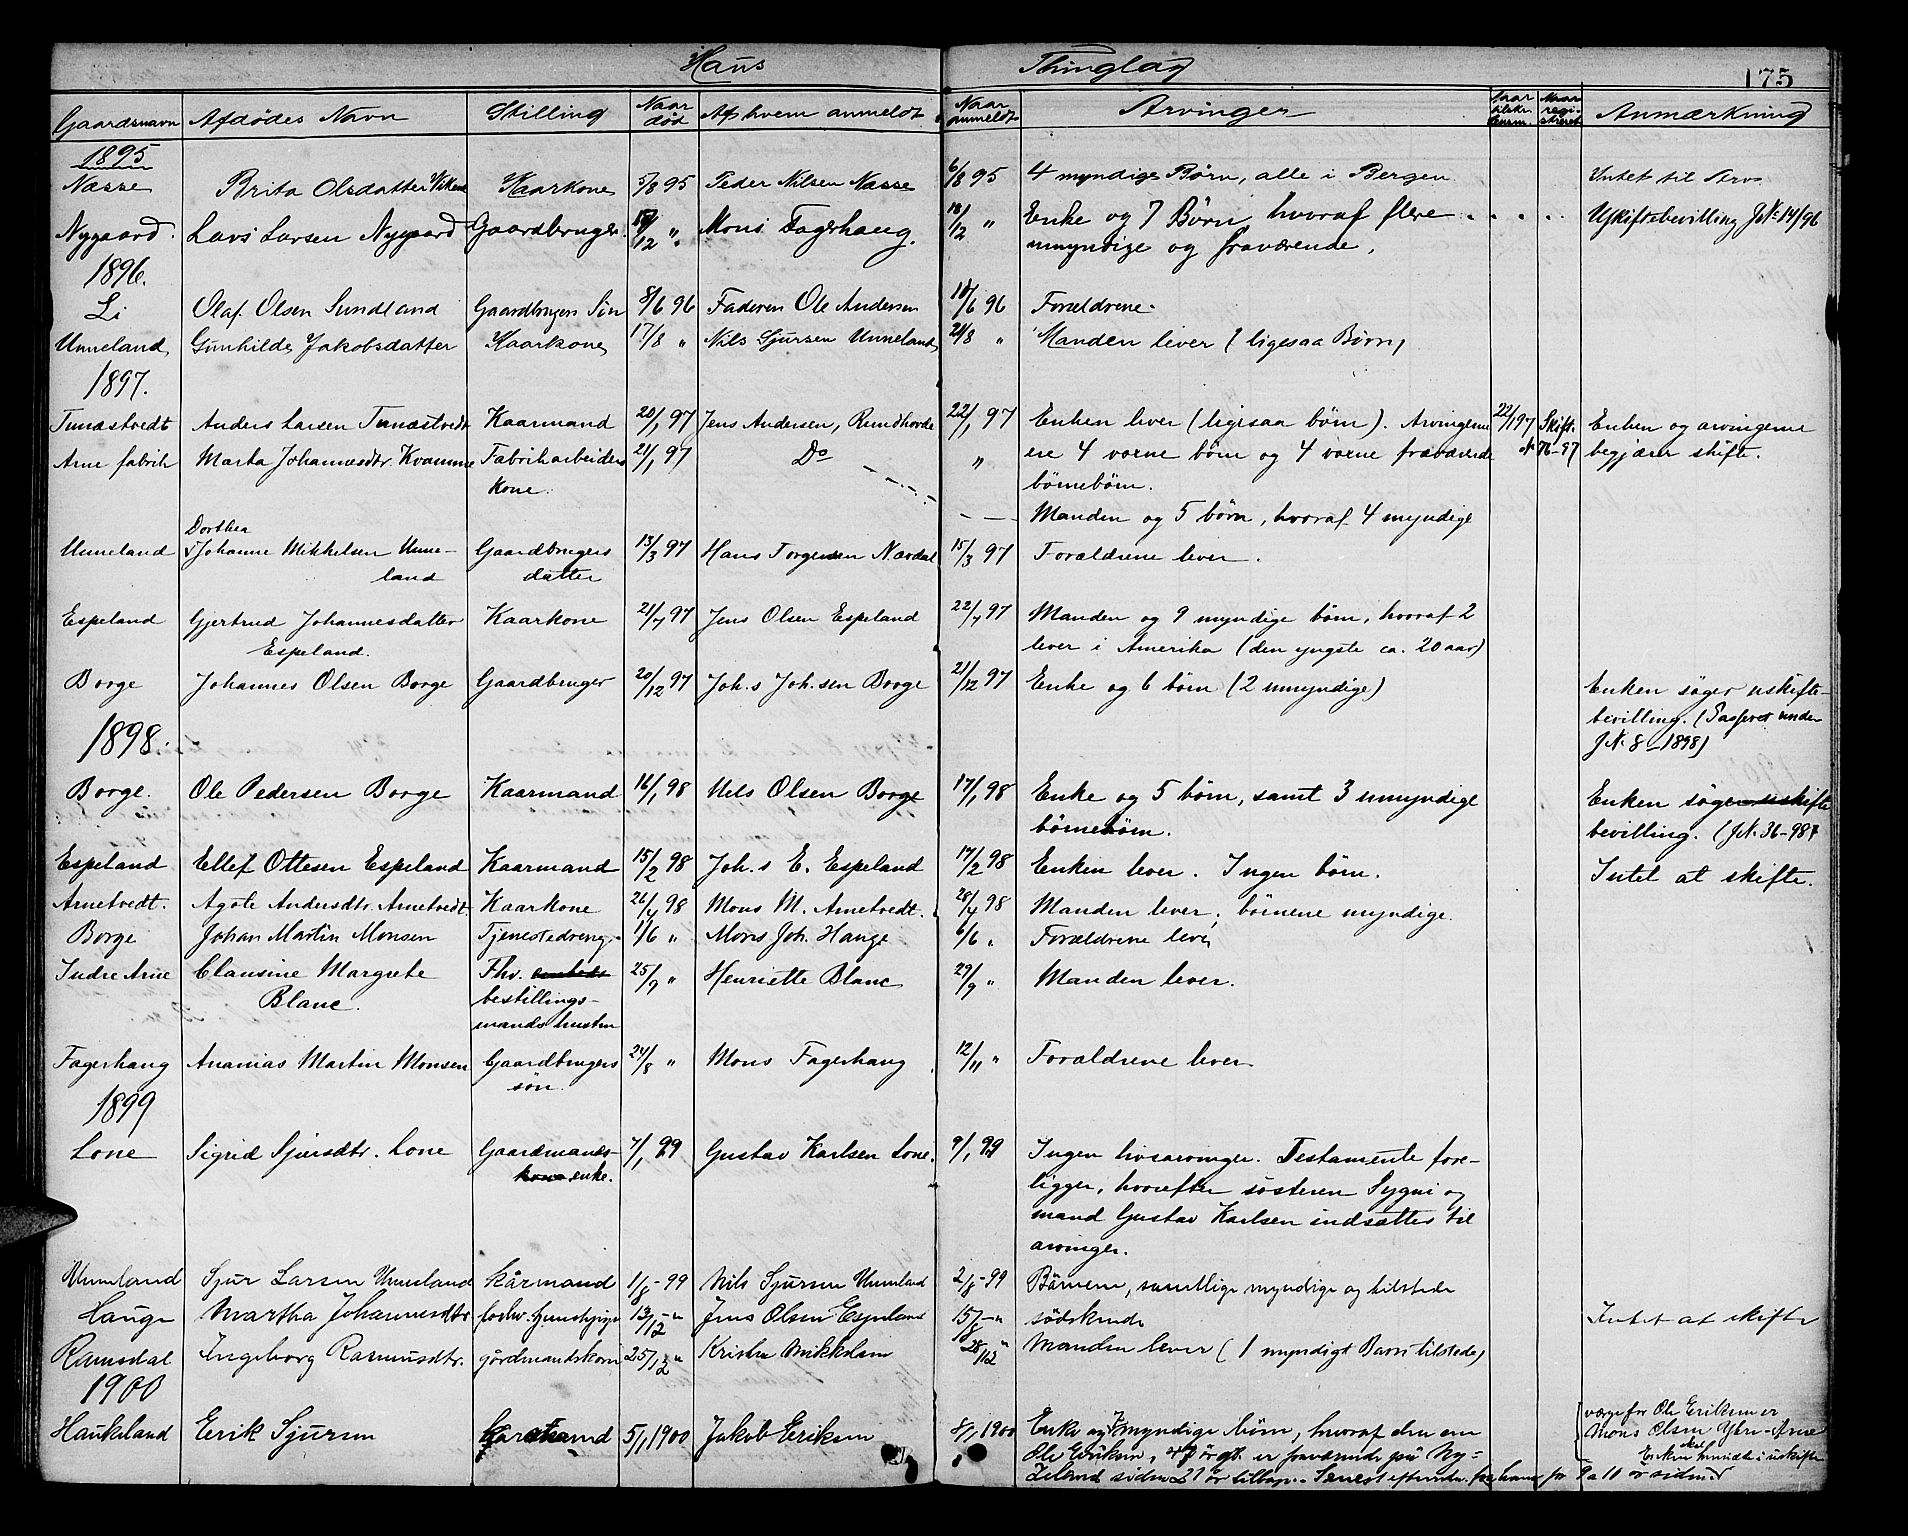 Haus Thinglag 175
Gaardsnavn Afdødes Navn Stilling Naar død Af hvem anmeldt Naar anmeldt Arvinger Naar Naar regi- streret Anmærkning
1895
Næsse Brita Olsdatter Kaarkone 5/8 95 Peder Nilsen Næsse 6/8 95 4 myndige Børn, alle i Bergen Intet til Arv
Nygaard. Lars Larsen Nygaard Gaardbruger. /12 " Mons Fagerhaug. 18/2 " Enke og 7 Børn hvoraf flere . . . . Uskiftebevilling J.N. 14/96
umyndige og fraværende,
1896.
Li Olaf Olsen Sundland Gaardbrugers Søn 8/6 96 Faderen Ole Andersen 10/6 96 Forældrene.
Unneland, Gunhilde Jakobsdatter Kaarkone 17/8 " Nils Sjursen Unneland, 24/8 " Manden lever (ligesaa Børn)
1897.
Tunæstvedt Anders Larsen Tunæstvedt Kaarmand 20/1 97 Jens Andersen, Rundhovde 22/1 97 Enken lever (ligesaa børn). Arvingerne 22/1 97 Skift. Enken og arvingerne
Arne fabrik Marta Johannesdtr. Kvamme Fabrikarbeiders 21/1 97 Do " ere 4 vorne børn og 4 vorne fraværende N 76-97 begjærer skifte.
kone. børnebørn.
Manden og 5 børn, hvoraf 4 myndige
Dorthea
Unneland Johanne Mikkelsen Unne- Gaardbrugers 13/3 97 Hans Torgersen Nærdal 15/3 97 Forældrene lever.
land datter
Espeland Gjertrud Johannesdatter Kaarkone 21/7 97 Jens Olsen Espeland 22/7 97 Manden og 9 myndige børn, hvoraf 2
Espeland. lever i Amerika (den yngste ca. 20 aar)
Borge Johannes Olsen Borge Gaardbruger 20/12 97 Joh.s Joh.sen Borge 21/12 97 Enke og 6 børn (2 umyndige) Enken søger uskifte-
bevilling. ( under
1898. J.N. 8-1898)
Borge. Ole Pedersen Borge Kaarmand 16/1 98 Nils Olsen Borge 17/1 98 Enke og 5 børn, samt 3 umyndige Enken søger uskifte
børnebørn. bevilling. (J.N. 36-98)
Espeland Ellef Ottesen Espeland Kaarmand 15/2 98 Joh.s E. Espeland 17/2 98 Enken lever. Ingen børn. Intet at skifte.
Arnetvedt. Agote Andersdtr. Arnetvedt. Kaarkone 26/4 98 Mons M. Arnetvedt. 28/4 98 Manden lever; børnene myndige.
Borge Johan Martin Monsen Tjenestedreng. 1/6 " Mons Joh. Hauge 6/6 " Forældrene lever
Indre Arne Clausine Margrete Fhv. 25/9 " Henriette Blanc 29/9 " Manden lever.
Blanc. bestillings-
mands hustru
Fagerhaug Ananias Martin Monsen Gaardbrugers 24/8 " Mons Fagerhaug 12/11 " Forældrene lever
søn.
1899
Lone Sigrid Sjursdtr. Lone Gaardmands- 7/1 99 Gustav Karlsen Lone. 9/1 99 Ingen livsarvinger. Testamente fore-
kone enke. ligger, hvorefter søsteren Sygni og
mand Gustav Karlsen indsættes til
arvinger.
Unneland Sjur Larsen Unneland kårmand 1/8-99 Nils Sjursen Unneland 2/8-99 Børnene, samtlige myndige og tilstede
Hauge Martha Johannesdtr. 13/12-" Jens Olsen Espeland 15/8-" södskende Intet at skifte
Ramsdal Ingeborg Rasmusdtr. gårdmandskone 25/12 " Kristen Mikkelsen 28/12 " Manden lever (1 myndigt Barn tilstede)
1900
Haukeland Erik Sjursen 5/1 1900 Jakob Eriksen 8/1 1900 Enke og 7 myndige børn, hvoraf den ene værge for Ole Eriksen er
Ole Eriksen, 47 årgl. er fraværende på Ny- Mons Olsen Ytre-Arne
Zeland siden 27 år tilbage. Senest efterretn. fra ham for 9 a 10 år siden. Enken skal hensidde i uskifte